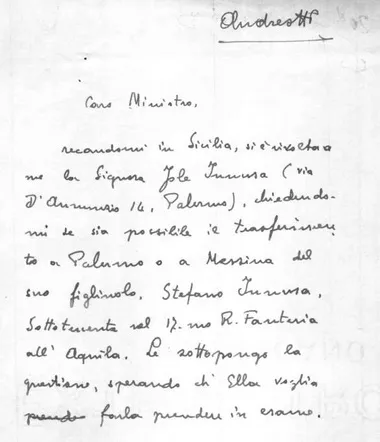 Andreotti
Caro Ministro,
recandomi in Sicilia, si è rivolta a
me la Signora Jole Innusa (via
D'Annunzio 14, Palermo), chiedendo-
mi se sia possibile il trasferimen
to a Palermo o a Messina del
suo figliuolo, Stefano Innusa,
Sottotenente nel 17.mo R. Fanteria
all'Aquila. Le sottopongo la
questione, sperando ch'Ella voglia
farla prendere in esame.